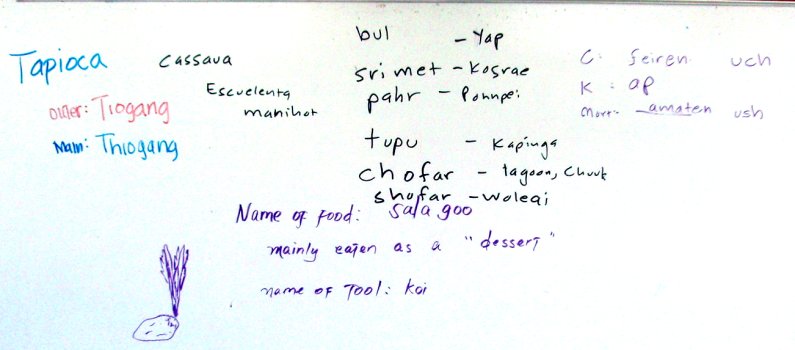 Tapioca cassava
Escuelenta
manihot
Outer: Tiogang
Main: Thiogang
bul - Yap
srimet - Kosrae
pahr - Pohnpei
tupu - Kapinga
chofar - lagoon, Chuuk
shofar - woleai
C: feiren uch
K: ap
Mort: amaten ush
Name of food: Salagoo
mainly eaten as a "dessert"
name of Tool: Koi